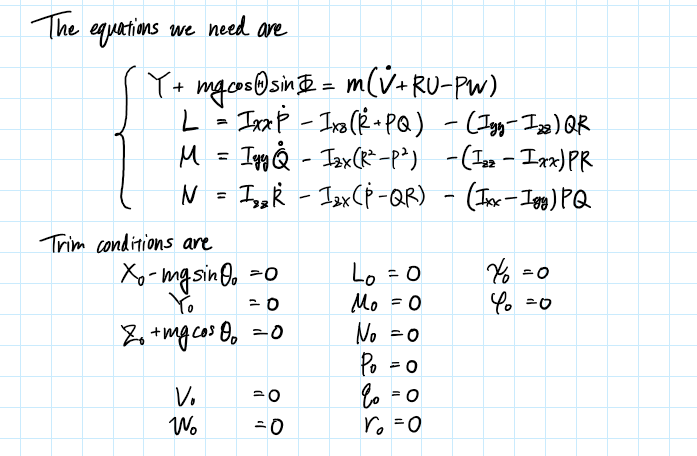 The equations we need are
Y + mg cosΘ sinΦ = m(V̇ + RU - PW)
L = Ixx Ṗ - Ixz(Ṙ + PQ) - (Iyy - Izz)QR
M = Iyy Q̇ - Izx(R² - P²) - (Izz - Ixx)PR
N = Izz Ṙ - Izx(Ṗ - QR) - (Ixx - Iyy)PQ
Trim conditions are
X₀ - mg sin θ₀ = 0 L₀ = 0 χ₀ = 0
Y₀ = 0 M₀ = 0 φ₀ = 0
Z₀ + mg cos θ₀ = 0 N₀ = 0
p₀ = 0
V₀ = 0 q₀ = 0
W₀ = 0 r₀ = 0